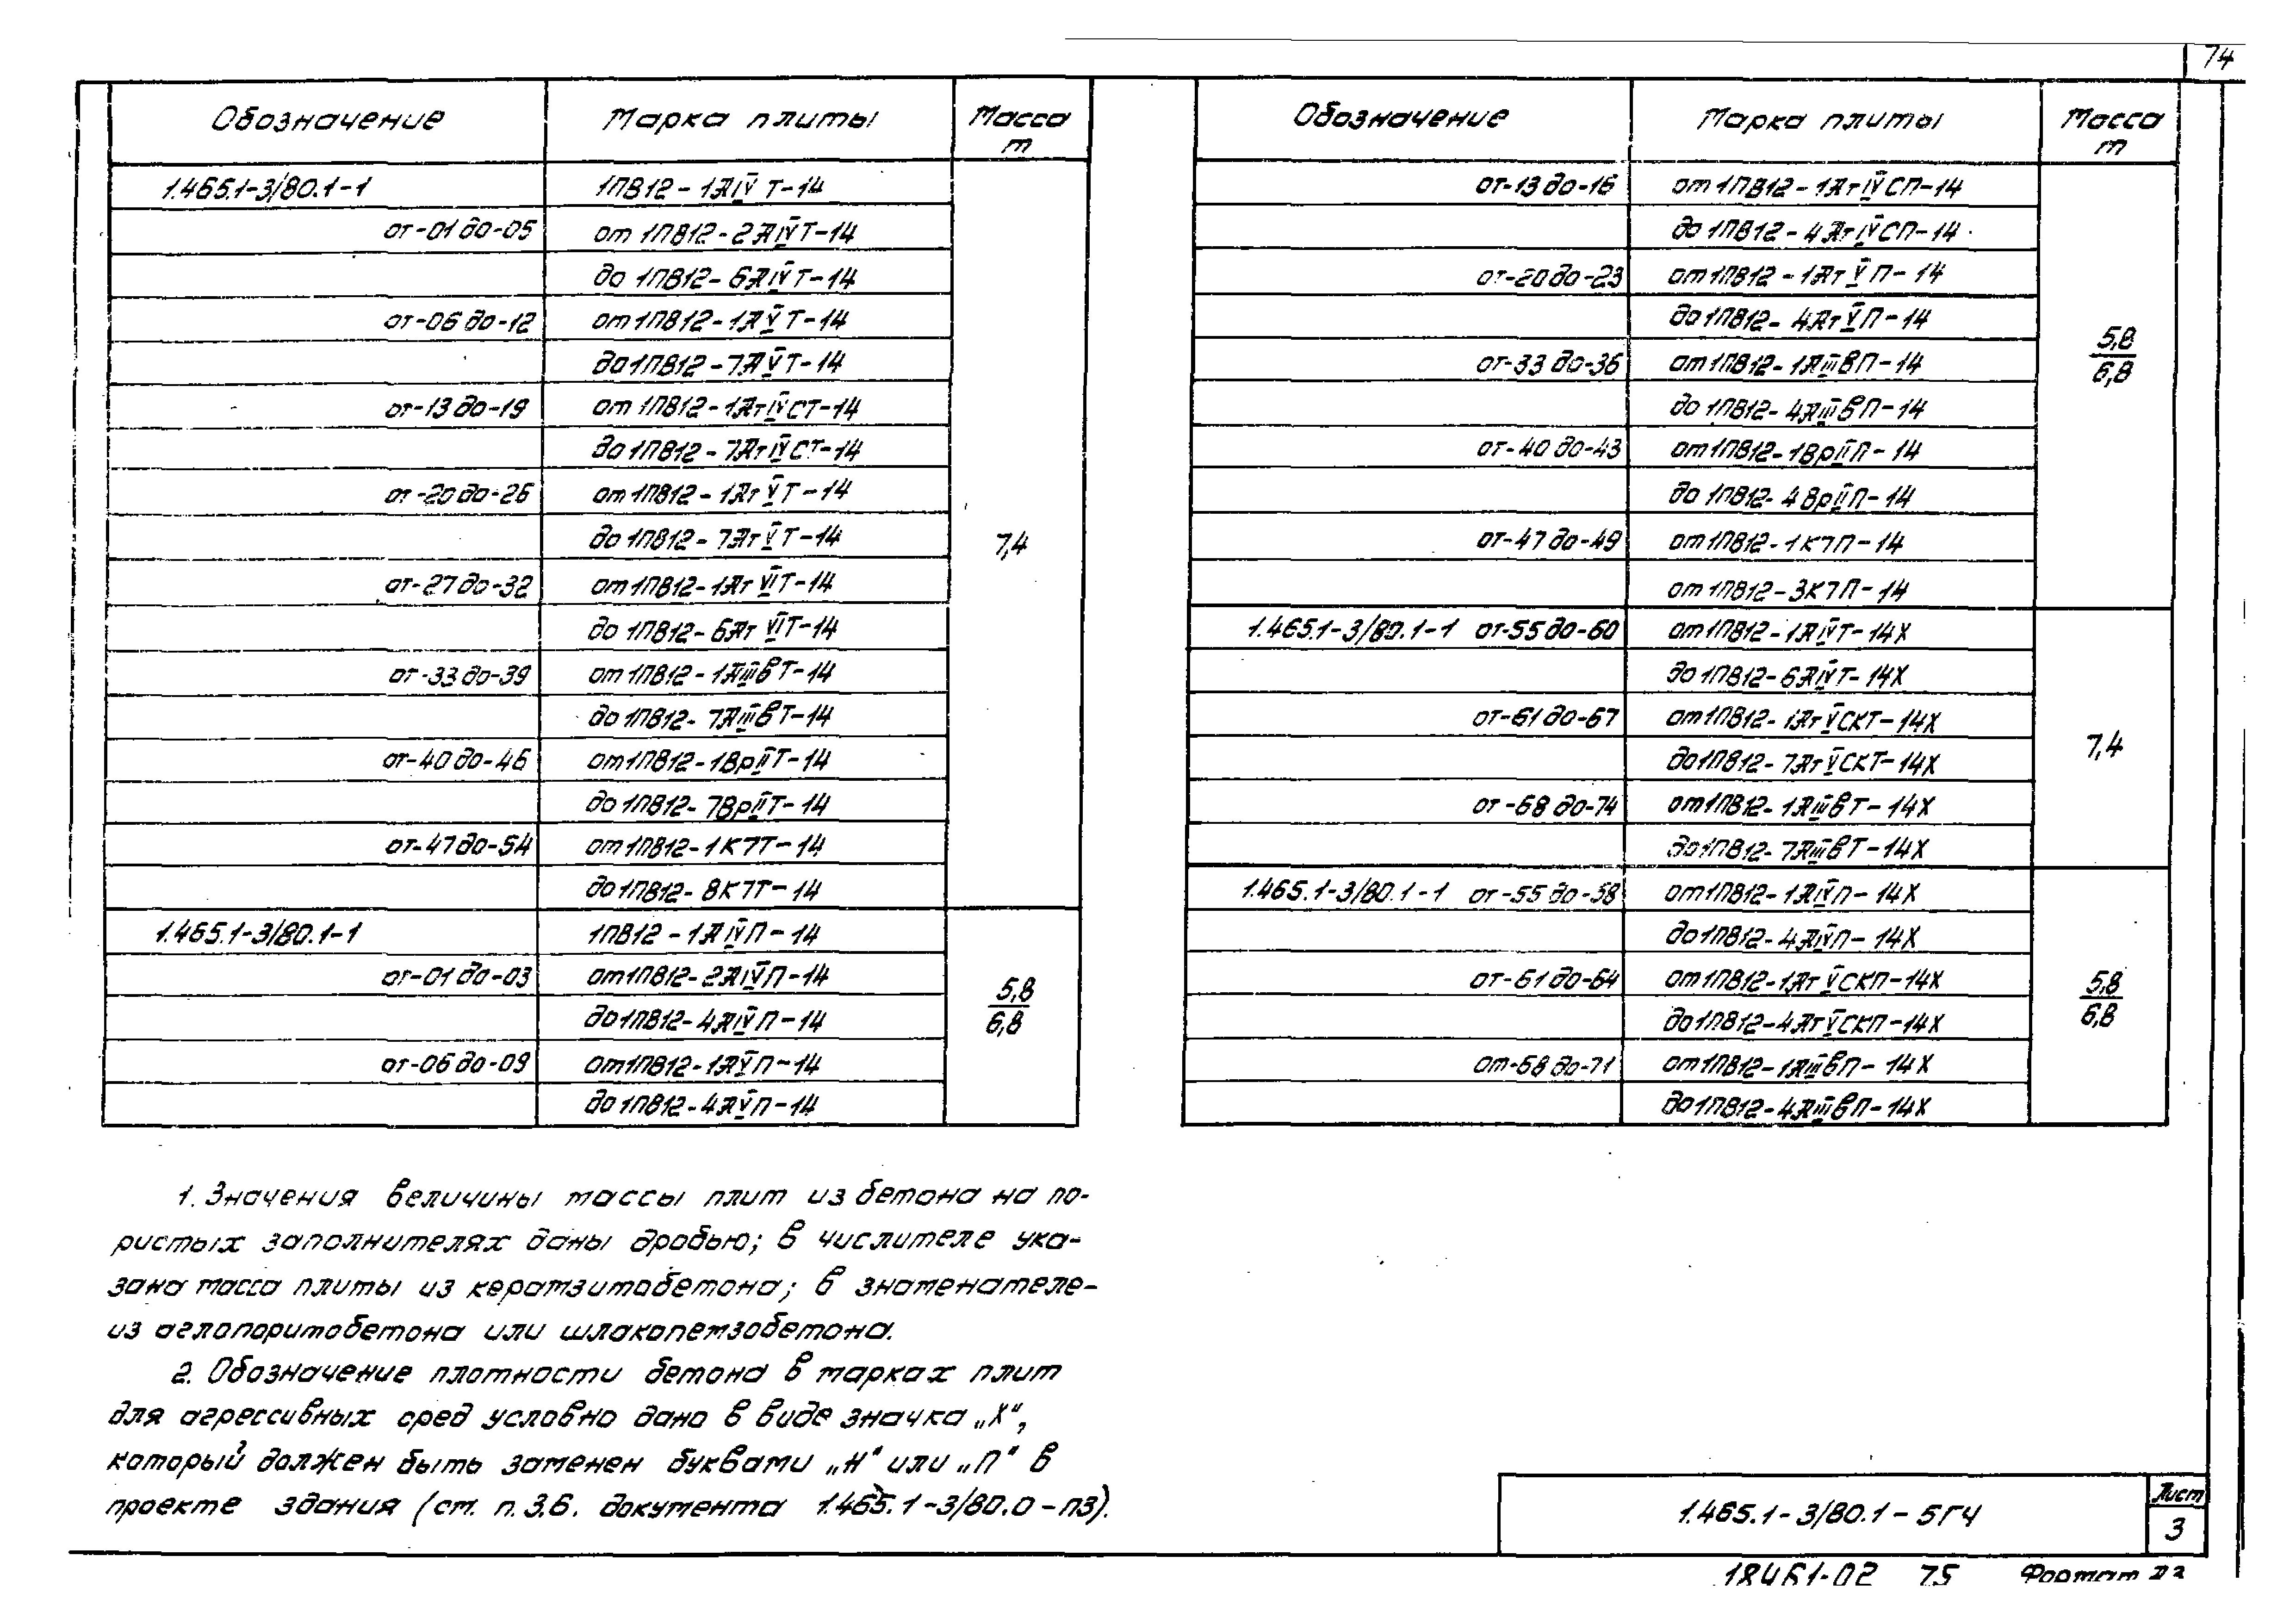 74
Обозначение Марка плиты Масса т
1.465.1-3/80.1-1 1ПВ12-1АIVТ-14
от-01 до-05 от 1ПВ12-2АIVТ-14
до 1ПВ12-6АIVТ-14
от-06 до-12 от 1ПВ12-1АVТ-14
до 1ПВ12-7АVТ-14
от-13 до-19 от 1ПВ12-1АтIVСТ-14
до 1ПВ12-7АтIVСТ-14
от-20 до-26 от 1ПВ12-1АтVТ-14
до 1ПВ12-7АтVТ-14
7,4
от-27 до-32 от 1ПВ12-1АтVIТ-14
до 1ПВ12-6АтVIТ-14
от-33 до-39 от 1ПВ12-1АIIIвТ-14
до 1ПВ12-7АIIIвТ-14
от-40 до-46 от 1ПВ12-1ВрIIТ-14
до 1ПВ12-7ВрIIТ-14
от-47 до-54 от 1ПВ12-1К7Т-14
до 1ПВ12-8К7Т-14
1.465.1-3/80.1-1 1ПВ12-1АIVП-14
от-01 до-03 от 1ПВ12-2АIVП-14
5,8
6,8
до 1ПВ12-4АIVП-14
от-06 до-09 от 1ПВ12-1АVП-14
до 1ПВ12-4АVП-14
Обозначение Марка плиты Масса т
от-13 до-16 от 1ПВ12-1АтIVСП-14
до 1ПВ12-4АтIVСП-14
от-20 до-23 от 1ПВ12-1АтVП-14
до 1ПВ12-4АтVП-14
5,8
6,8
от-33 до-36 от 1ПВ12-1АIIIвП-14
до 1ПВ12-4АIIIвП-14
от-40 до-43 от 1ПВ12-1ВрIIП-14
до 1ПВ12-4ВрIIП-14
от-47 до-49 от 1ПВ12-1К7П-14
от 1ПВ12-3К7П-14
1.465.1-3/80.1-1 от-55 до-60 от 1ПВ12-1АIVТ-14Х
до 1ПВ12-6АIVТ-14Х
от-61 до-67 от 1ПВ12-1АтVСКТ-14Х
7,4
до 1ПВ12-7АтVСКТ-14Х
от-68 до-74 от 1ПВ12-1АIIIвТ-14Х
до 1ПВ12-7АIIIвТ-14Х
1.465.1-3/80.1-1 от-55 до-58 от 1ПВ12-1АIVП-14Х
до 1ПВ12-4АIVП-14Х
от-61 до-64 от 1ПВ12-1АтVСКП-14Х
5,8
6,8
до 1ПВ12-4АтVСКП-14Х
от-68 до-71 от 1ПВ12-1АIIIвП-14Х
до 1ПВ12-4АIIIвП-14Х
1. Значения величины массы плит из бетона на по-
ристых заполнителях даны дробью; в числителе ука-
зана масса плиты из керамзитобетона; в знаменателе-
из аглопоритобетона или шлакопемзобетона.
2. Обозначение плотности бетона в марках плит
для агрессивных сред условно дано в виде значка „Х",
который должен быть заменен буквами „Н" или „П" в
проекте здания (см. п. 3.6. документа 1.465.1-3/80.0-ПЗ).
1.465.1-3/80.1-5ГЧ
Лист
3
18461-02 75 Формат А3